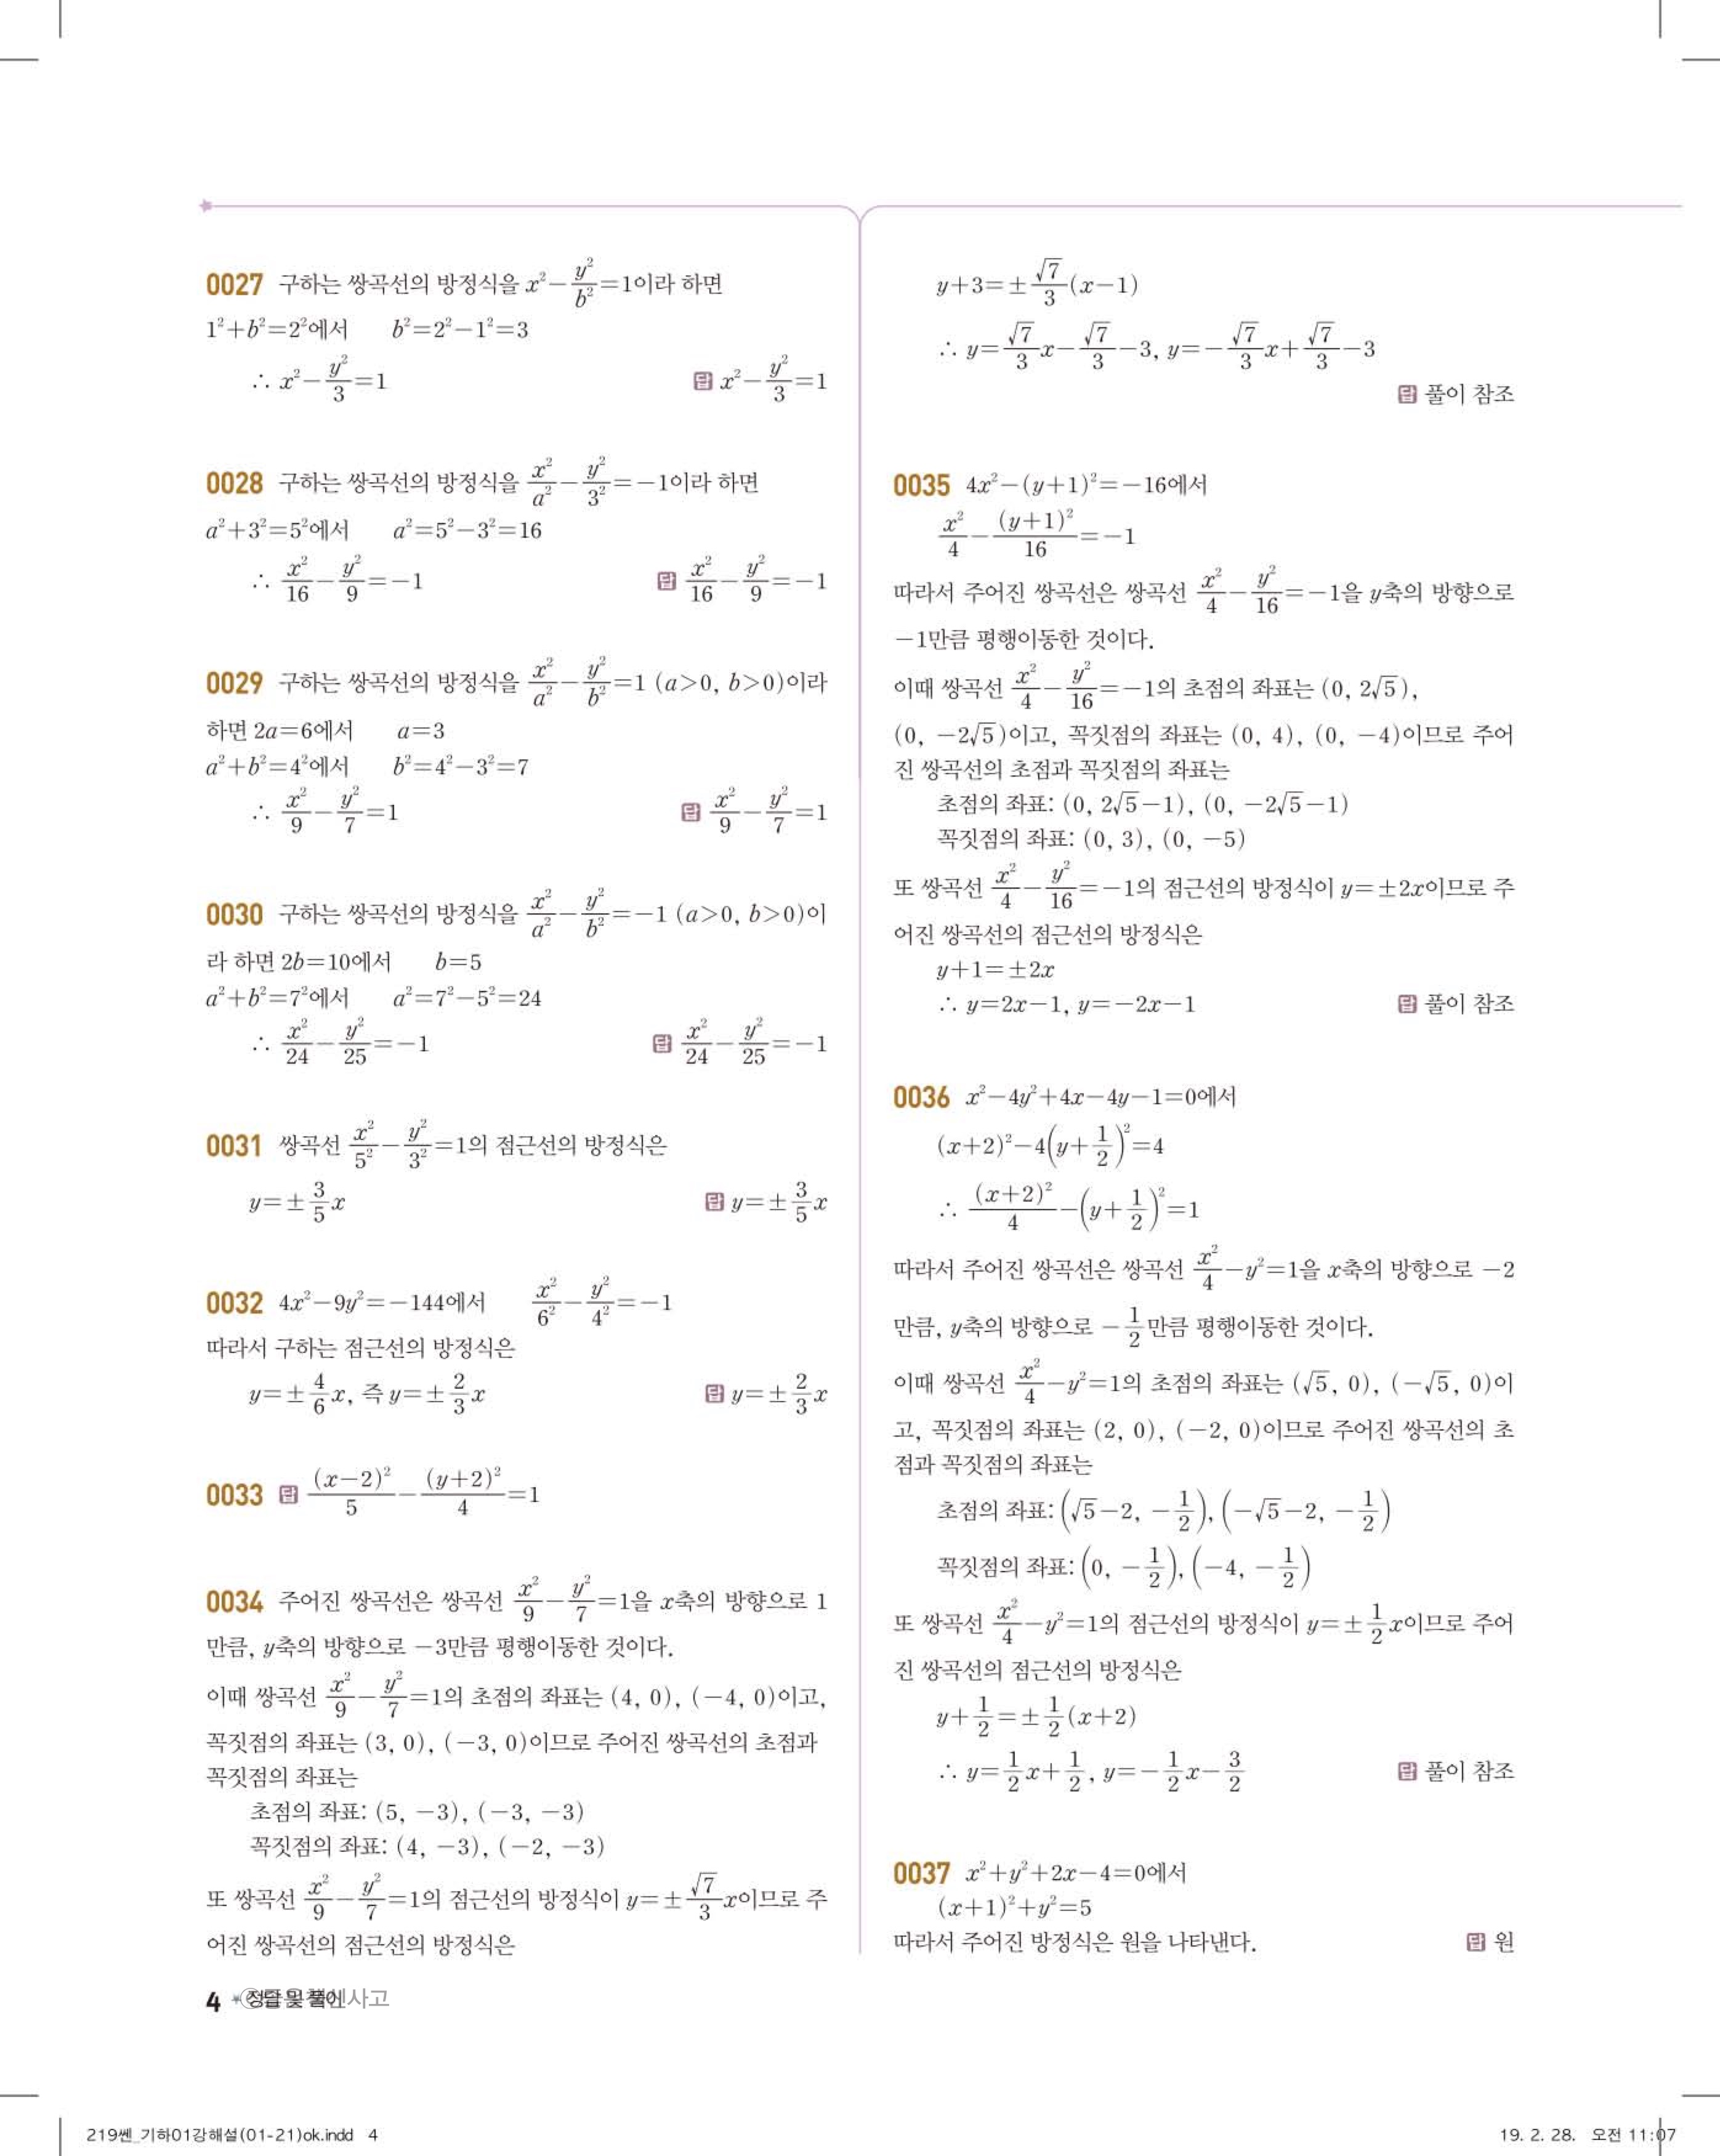 0027 구하는 쌍곡선의 방정식을 x²−y²/b²=1이라 하면
1²+b²=2²에서 b²=2²−1²=3
∴ x²−y²/3=1 답 x²−y²/3=1
0028 구하는 쌍곡선의 방정식을 x²/a²−y²/3²=−1이라 하면
a²+3²=5²에서 a²=5²−3²=16
∴ x²/16−y²/9=−1 답 x²/16−y²/9=−1
0029 구하는 쌍곡선의 방정식을 x²/a²−y²/b²=1 (a>0, b>0)이라
하면 2a=6에서 a=3
a²+b²=4²에서 b²=4²−3²=7
∴ x²/9−y²/7=1 답 x²/9−y²/7=1
0030 구하는 쌍곡선의 방정식을 x²/a²−y²/b²=−1 (a>0, b>0)이
라 하면 2b=10에서 b=5
a²+b²=7²에서 a²=7²−5²=24
∴ x²/24−y²/25=−1 답 x²/24−y²/25=−1
0031 쌍곡선 x²/5²−y²/3²=1의 점근선의 방정식은
y=±3/5x 답 y=±3/5x
0032 4x²−9y²=−144에서 x²/6²−y²/4²=−1
따라서 구하는 점근선의 방정식은
y=±4/6x, 즉 y=±2/3x 답 y=±2/3x
0033 답 (x−2)²/5−(y+2)²/4=1
0034 주어진 쌍곡선은 쌍곡선 x²/9−y²/7=1을 x축의 방향으로 1
만큼, y축의 방향으로 −3만큼 평행이동한 것이다.
이때 쌍곡선 x²/9−y²/7=1의 초점의 좌표는 (4, 0), (−4, 0)이고,
꼭짓점의 좌표는 (3, 0), (−3, 0)이므로 주어진 쌍곡선의 초점과
꼭짓점의 좌표는
초점의 좌표: (5, −3), (−3, −3)
꼭짓점의 좌표: (4, −3), (−2, −3)
또 쌍곡선 x²/9−y²/7=1의 점근선의 방정식이 y=±√7/3x이므로 주
어진 쌍곡선의 점근선의 방정식은
y+3=±√7/3(x−1)
∴ y=√7/3x−√7/3−3, y=−√7/3x+√7/3−3
답 풀이 참조
0035 4x²−(y+1)²=−16에서
x²/4−(y+1)²/16=−1
따라서 주어진 쌍곡선은 쌍곡선 x²/4−y²/16=−1을 y축의 방향으로
−1만큼 평행이동한 것이다.
이때 쌍곡선 x²/4−y²/16=−1의 초점의 좌표는 (0, 2√5),
(0, −2√5)이고, 꼭짓점의 좌표는 (0, 4), (0, −4)이므로 주어
진 쌍곡선의 초점과 꼭짓점의 좌표는
초점의 좌표: (0, 2√5−1), (0, −2√5−1)
꼭짓점의 좌표: (0, 3), (0, −5)
또 쌍곡선 x²/4−y²/16=−1의 점근선의 방정식이 y=±2x이므로 주
어진 쌍곡선의 점근선의 방정식은
y+1=±2x
∴ y=2x−1, y=−2x−1 답 풀이 참조
0036 x²−4y²+4x−4y−1=0에서
(x+2)²−4(y+1/2)²=4
∴ (x+2)²/4−(y+1/2)²=1
따라서 주어진 쌍곡선은 쌍곡선 x²/4−y²=1을 x축의 방향으로 −2
만큼, y축의 방향으로 −1/2만큼 평행이동한 것이다.
이때 쌍곡선 x²/4−y²=1의 초점의 좌표는 (√5, 0), (−√5, 0)이
고, 꼭짓점의 좌표는 (2, 0), (−2, 0)이므로 주어진 쌍곡선의 초
점과 꼭짓점의 좌표는
초점의 좌표: (√5−2, −1/2), (−√5−2, −1/2)
꼭짓점의 좌표: (0, −1/2), (−4, −1/2)
또 쌍곡선 x²/4−y²=1의 점근선의 방정식이 y=±1/2x이므로 주어
진 쌍곡선의 점근선의 방정식은
y+1/2=±1/2(x+2)
∴ y=1/2x+1/2, y=−1/2x−3/2 답 풀이 참조
0037 x²+y²+2x−4=0에서
(x+1)²+y²=5
따라서 주어진 방정식은 원을 나타낸다. 답 원
4 정답 및 풀이
219쎈_기하01강해설(01-21)ok.indd 4
19. 2. 28. 오전 11:07